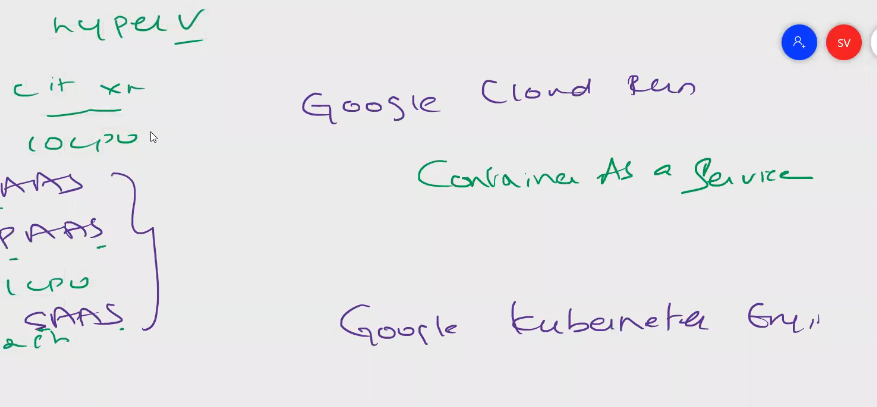 hyper V
cit xr
10CPU
AAS
PAAS
1 CPU
SAAS
ach
SV
Google Cloud Run
Container As a Service
Google Kubernetes